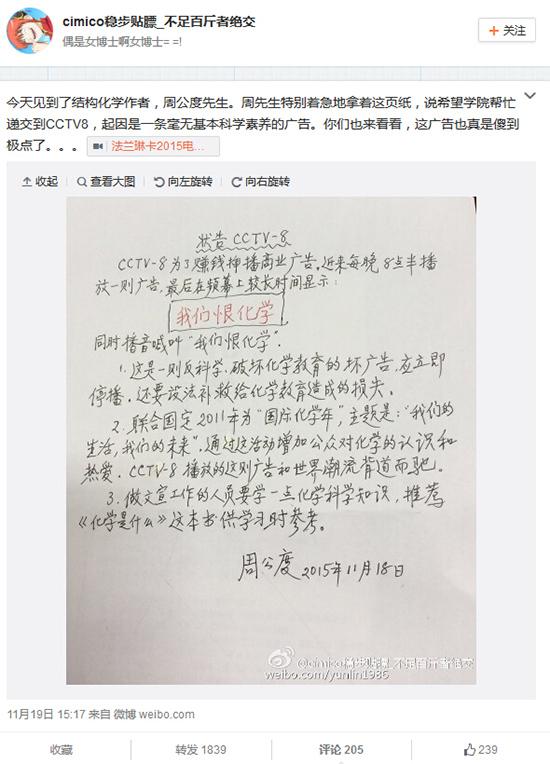 cimico稳步贴膘_不足百斤者绝交
偶是女博士啊女博士= =!
+ 关注
今天见到了结构化学作者，周公度先生。周先生特别着急地拿着这页纸，说希望学院帮忙
递交到CCTV8，起因是一条毫无基本科学素养的广告。你们也来看看，这广告也真是傻到
极点了。。。 法兰琳卡2015电...
收起 查看大图 向左旋转 向右旋转
状告 CCTV-8
CCTV-8为了赚钱插播商业广告。近来每晚8点半播
放一则广告，最后在频幕上较长时间显示：
我们恨化学
同时播音喊叫“我们恨化学”.
1. 这是一则反科学、破坏化学教育的坏广告，应立即
停播。还要设法补救给化学教育造成的损失。
2. 联合国定2011年为“国际化学年”，主题是：“我们的
生活，我们的未来”，通过这活动增加公众对化学的认识和
热爱。CCTV-8播放的这则广告和世界潮流背道而驰。
3. 做文宣工作的人员要学一点化学科学知识，推荐
《化学是什么》这本书供学习时参考。
周公度 2015年11月18日
@cimico稳步贴膘_不足百斤者绝交
weibo.com/yunlin1986
11月19日 15:17 来自 微博 weibo.com
收藏 转发 1839 评论 205 239